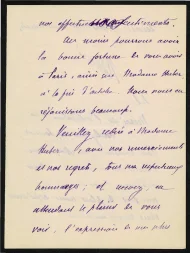 nos affectueux
Au moins pourrons avoir
la bonne fortune de vous avoir
à Paris, ainsi que Madame Huber
à la fin d'octobre. Nous nous en
réjouissons beaucoup.
Veuillez redire à Madame
Huber, avec nos remerciements
et nos regrets, tous nos respectueux
hommages; et recevez en
attendant le plaisir de vous
voir, l'expression de nos